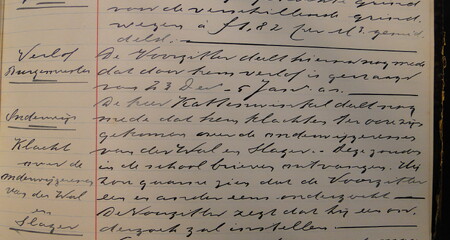 voor de verschillende grond
wegen à f 1,82 per M³ gemid
deld.
Verlof
Burgemeester
De Voorzitter deelt hierna nog mede
dat door hem verlof is gevraagd
van 23 Dec - 5 Jan. a.s.
Onderwijs
Klacht
over de
onderwijzeressen
van der Wal
en
Slager
De heer Kattenwinkel deelt nog
mede dat hem klachten ter oore zijn
gekomen over de onderwijzeressen
van der Wal en Slager.
in de school brieven ontvangen. Hij
zou gaarne zien dat de Voorzitter
een en ander eens onderzocht
De Voorzitter zegt dat hij een on
derzoek zal instellen.